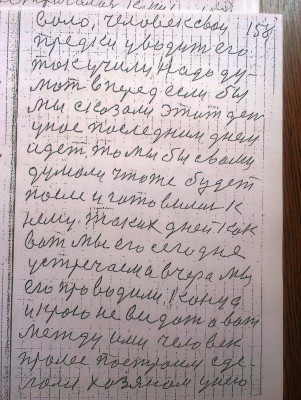 158
воло, человек свои
предки уводит его
так учили, Надо ду-
мат вперед если бы
мы сказали этит ден
у нас последним днем
идет то мы бы с вами
думали что же будет
после и готовились к
нему. таких дней как
ват мы его сегодне
устречаем а вчера мы
его проводили. Конца
и краю не видат а ват
между ими человек
пролес построит сде-
лали хозяном